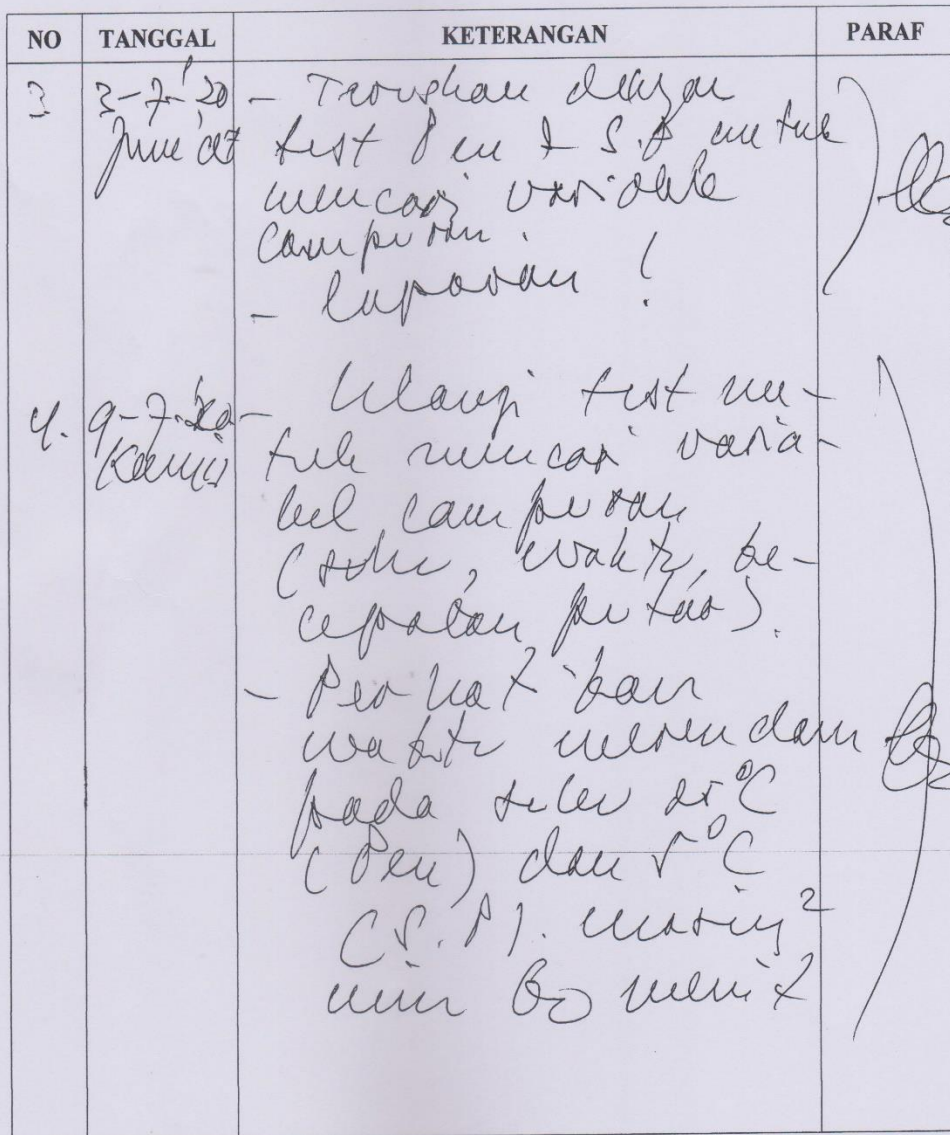 NO TANGGAL KETERANGAN PARAF
3 3-7-'20 - Teruskan dengan
Jum'at test Pen & S.P untuk
mencari variable
campuran.
- laporan !
4. 9-7-'20 - Ulangi test un-
Kamis tuk mencari varia-
bel campuran
(suhu, waktu, ke-
cepatan putar).
- Perhatikan
waktu merendam
pada suhu 25°C
(Pen) dan 5°C
(S.P). masing²
min 60 menit